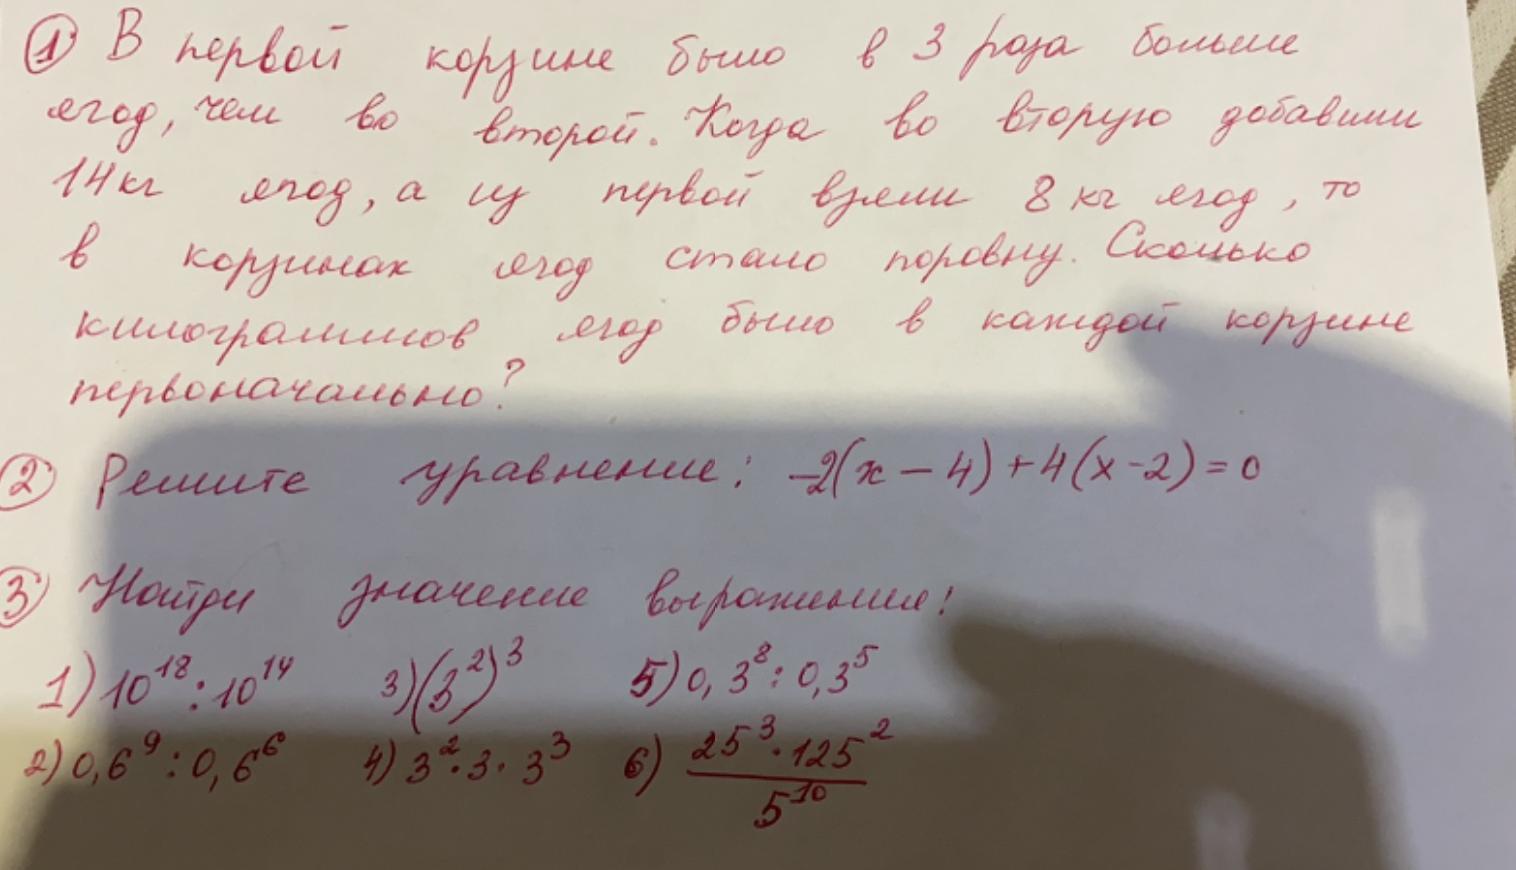 ① В первой корзине было в 3 раза больше
ягод, чем во второй. Когда во вторую добавили
14 кг ягод, а из первой взяли 8 кг ягод, то
в корзинах ягод стало поровну. Сколько
килограммов ягод было в каждой корзине
первоначально?
② Решите уравнение: -2(x - 4) + 4(x - 2) = 0
③ Найди значение выражения:
1) 10¹⁸ : 10¹⁴ 3) (3²)³ 5) 0,3⁸ : 0,3⁵
2) 0,6⁹ : 0,6⁶ 4) 3² · 3 · 3³ 6) 25³ · 125² / 5¹⁰